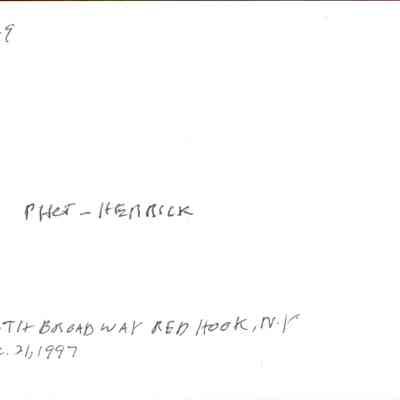 9
PHOT - HERRICK
TH BROADWAY RED HOOK, N.Y
c. 21, 1997